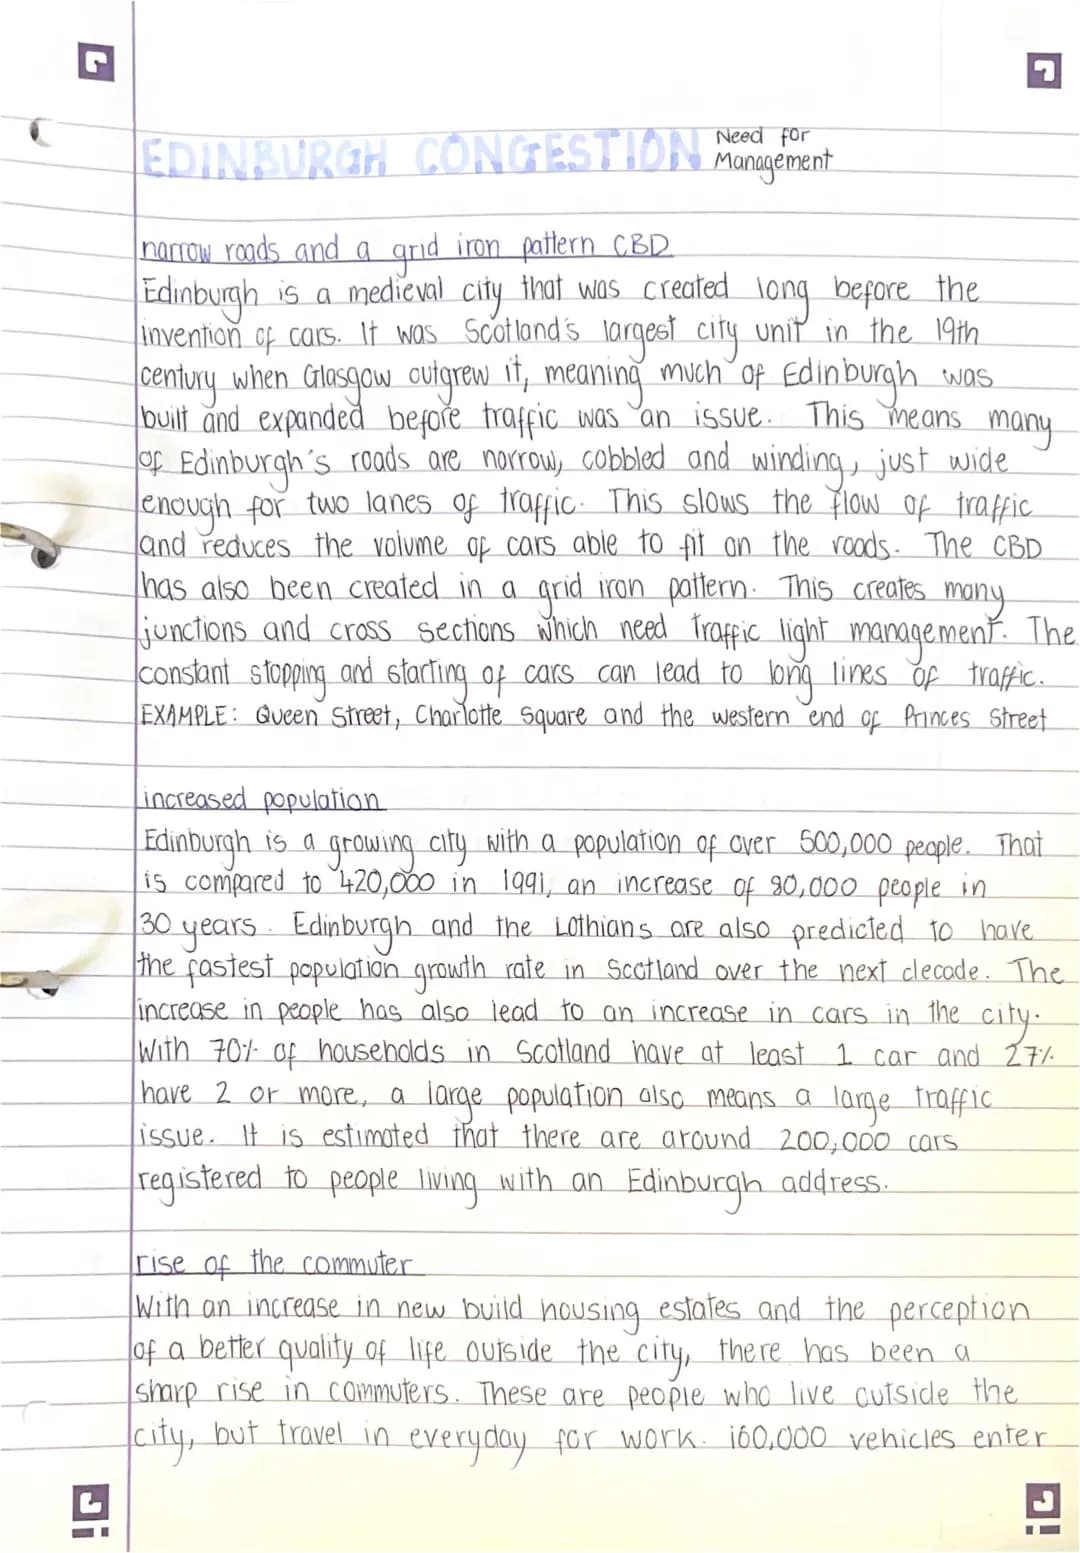 EDINBURGH CONGESTION Need for
Management
narrow roads and a grid iron pattern CBD
Edinburgh is a medieval city that was created long before the
invention of cars. It was Scotland's largest city unit in the 19th
century when Glasgow outgrew it, meaning much of Edinburgh was
built and expanded before traffic was an issue. This means many
of Edinburgh's roads are narrow, cobbled and winding, just wide
enough for two lanes of traffic. This slows the flow of traffic
and reduces the volume of cars able to fit on the roads. The CBD
has also been created in a grid iron pattern. This creates many
junctions and cross sections which need traffic light management. The
constant stopping and starting of cars can lead to long lines of traffic.
EXAMPLE: Queen Street, Charlotte Square and the western end of Princes Street
increased population
Edinburgh is a growing city with a population of over 500,000 people. That
is compared to 420,000 in 1991, an increase of 80,000 people in
30 years. Edinburgh and the Lothians are also predicted to have
the fastest population growth rate in Scotland over the next decade. The
increase in people has also lead to an increase in cars in the city.
With 70% of households in Scotland have at least 1 car and 27%
have 2 or more, a large population also means a large traffic
issue. It is estimated that there are around 200,000 cars
registered to people living with an Edinburgh address.
rise of the commuter
With an increase in new build housing estates and the perception
of a better quality of life outside the city, there has been a
sharp rise in commuters. These are people who live outside the
city, but travel in everyday for work. 160,000 vehicles enter